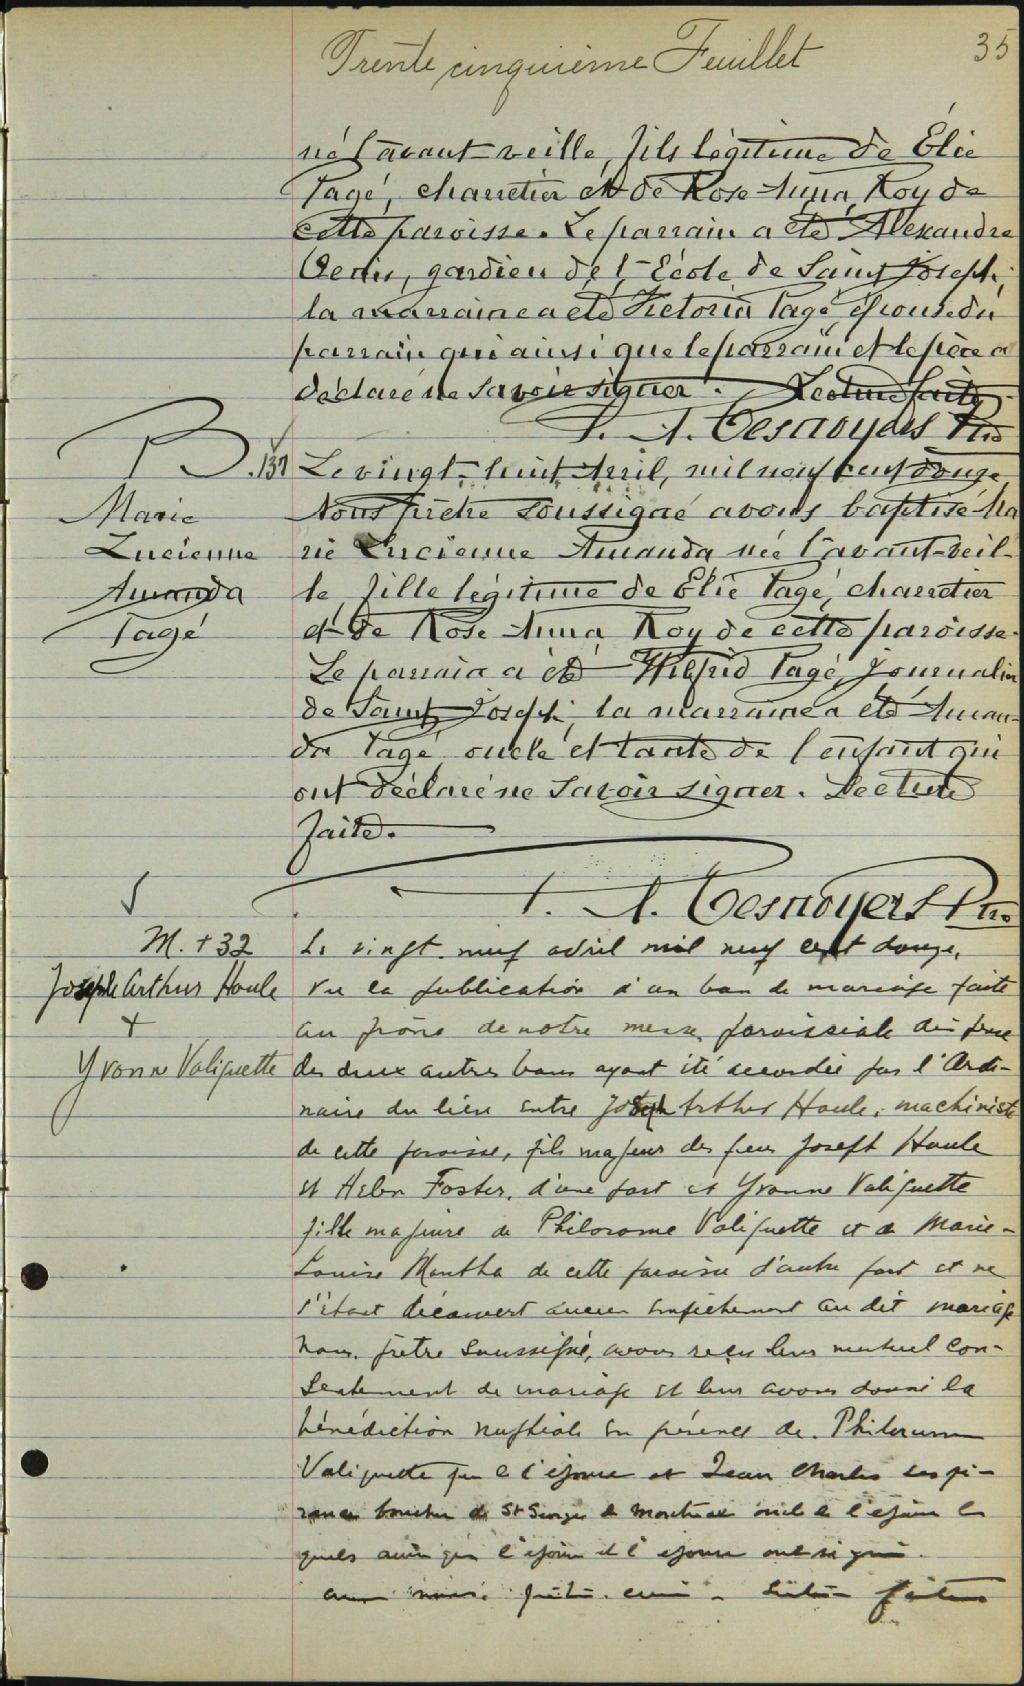 Trente cinquième Feuillet
35
né l'avant-veille, fils légitime de Élie
Pagé, charretier et de Rose-Anna Roy de
cette paroisse. Le parrain a été Alexandre
Denis, gardien de l'École de Saint Joseph;
la marraine a été Victoria Pagé épouse du
parrain qui ainsi que le parrain et le père a
déclaré ne savoir signer. Lecture faite.
A. Desnoyers Ptre
B. 137
Marie
Lucienne
Amanda
Pagé
Le vingt-huit Avril, mil neuf cent douze,
Nous prêtre soussigné avons baptisé Ma
rie Lucienne Amanda née l'avant-veil-
le, fille légitime de Élie Pagé, charretier
et de Rose-Anna Roy de cette paroisse.
Le parrain a été Wilfrid Pagé, journalier
de Saint Joseph; la marraine a été Aman-
da Pagé, oncle et tante de l'enfant qui
ont déclaré ne savoir signer. Lecture
faite.
A. Desnoyers Ptre
M. + 32
Joseph Arthur Houle
+
Yvonne Valiquette
Le vingt-neuf avril mil neuf cent douze,
vu la publication d'un ban de mariage faite
au prône de notre messe paroissiale dispense
des deux autres bans ayant été accordée par l'Ordi-
naire du lieu entre Joseph Arthur Houle, machiniste
de cette paroisse, fils majeur des feus Joseph Houle
et Helen Foster, d'une part et Yvonne Valiquette
fille majeure de Philorome Valiquette et de Marie-
Louise Mantha de cette paroisse d'autre part et ne
s'étant découvert aucun empêchement au dit mariage
Nous, prêtre soussigné, avons reçu leur mutuel con-
sentement de mariage et leur avons donné la
bénédiction nuptiale en présence de Philorum
Valiquette père de l'épouse et Jean Charles
boucher de St Georges de Montréal oncle de l'époux les
quels ainsi que l'époux et l'épouse ont signé
faite